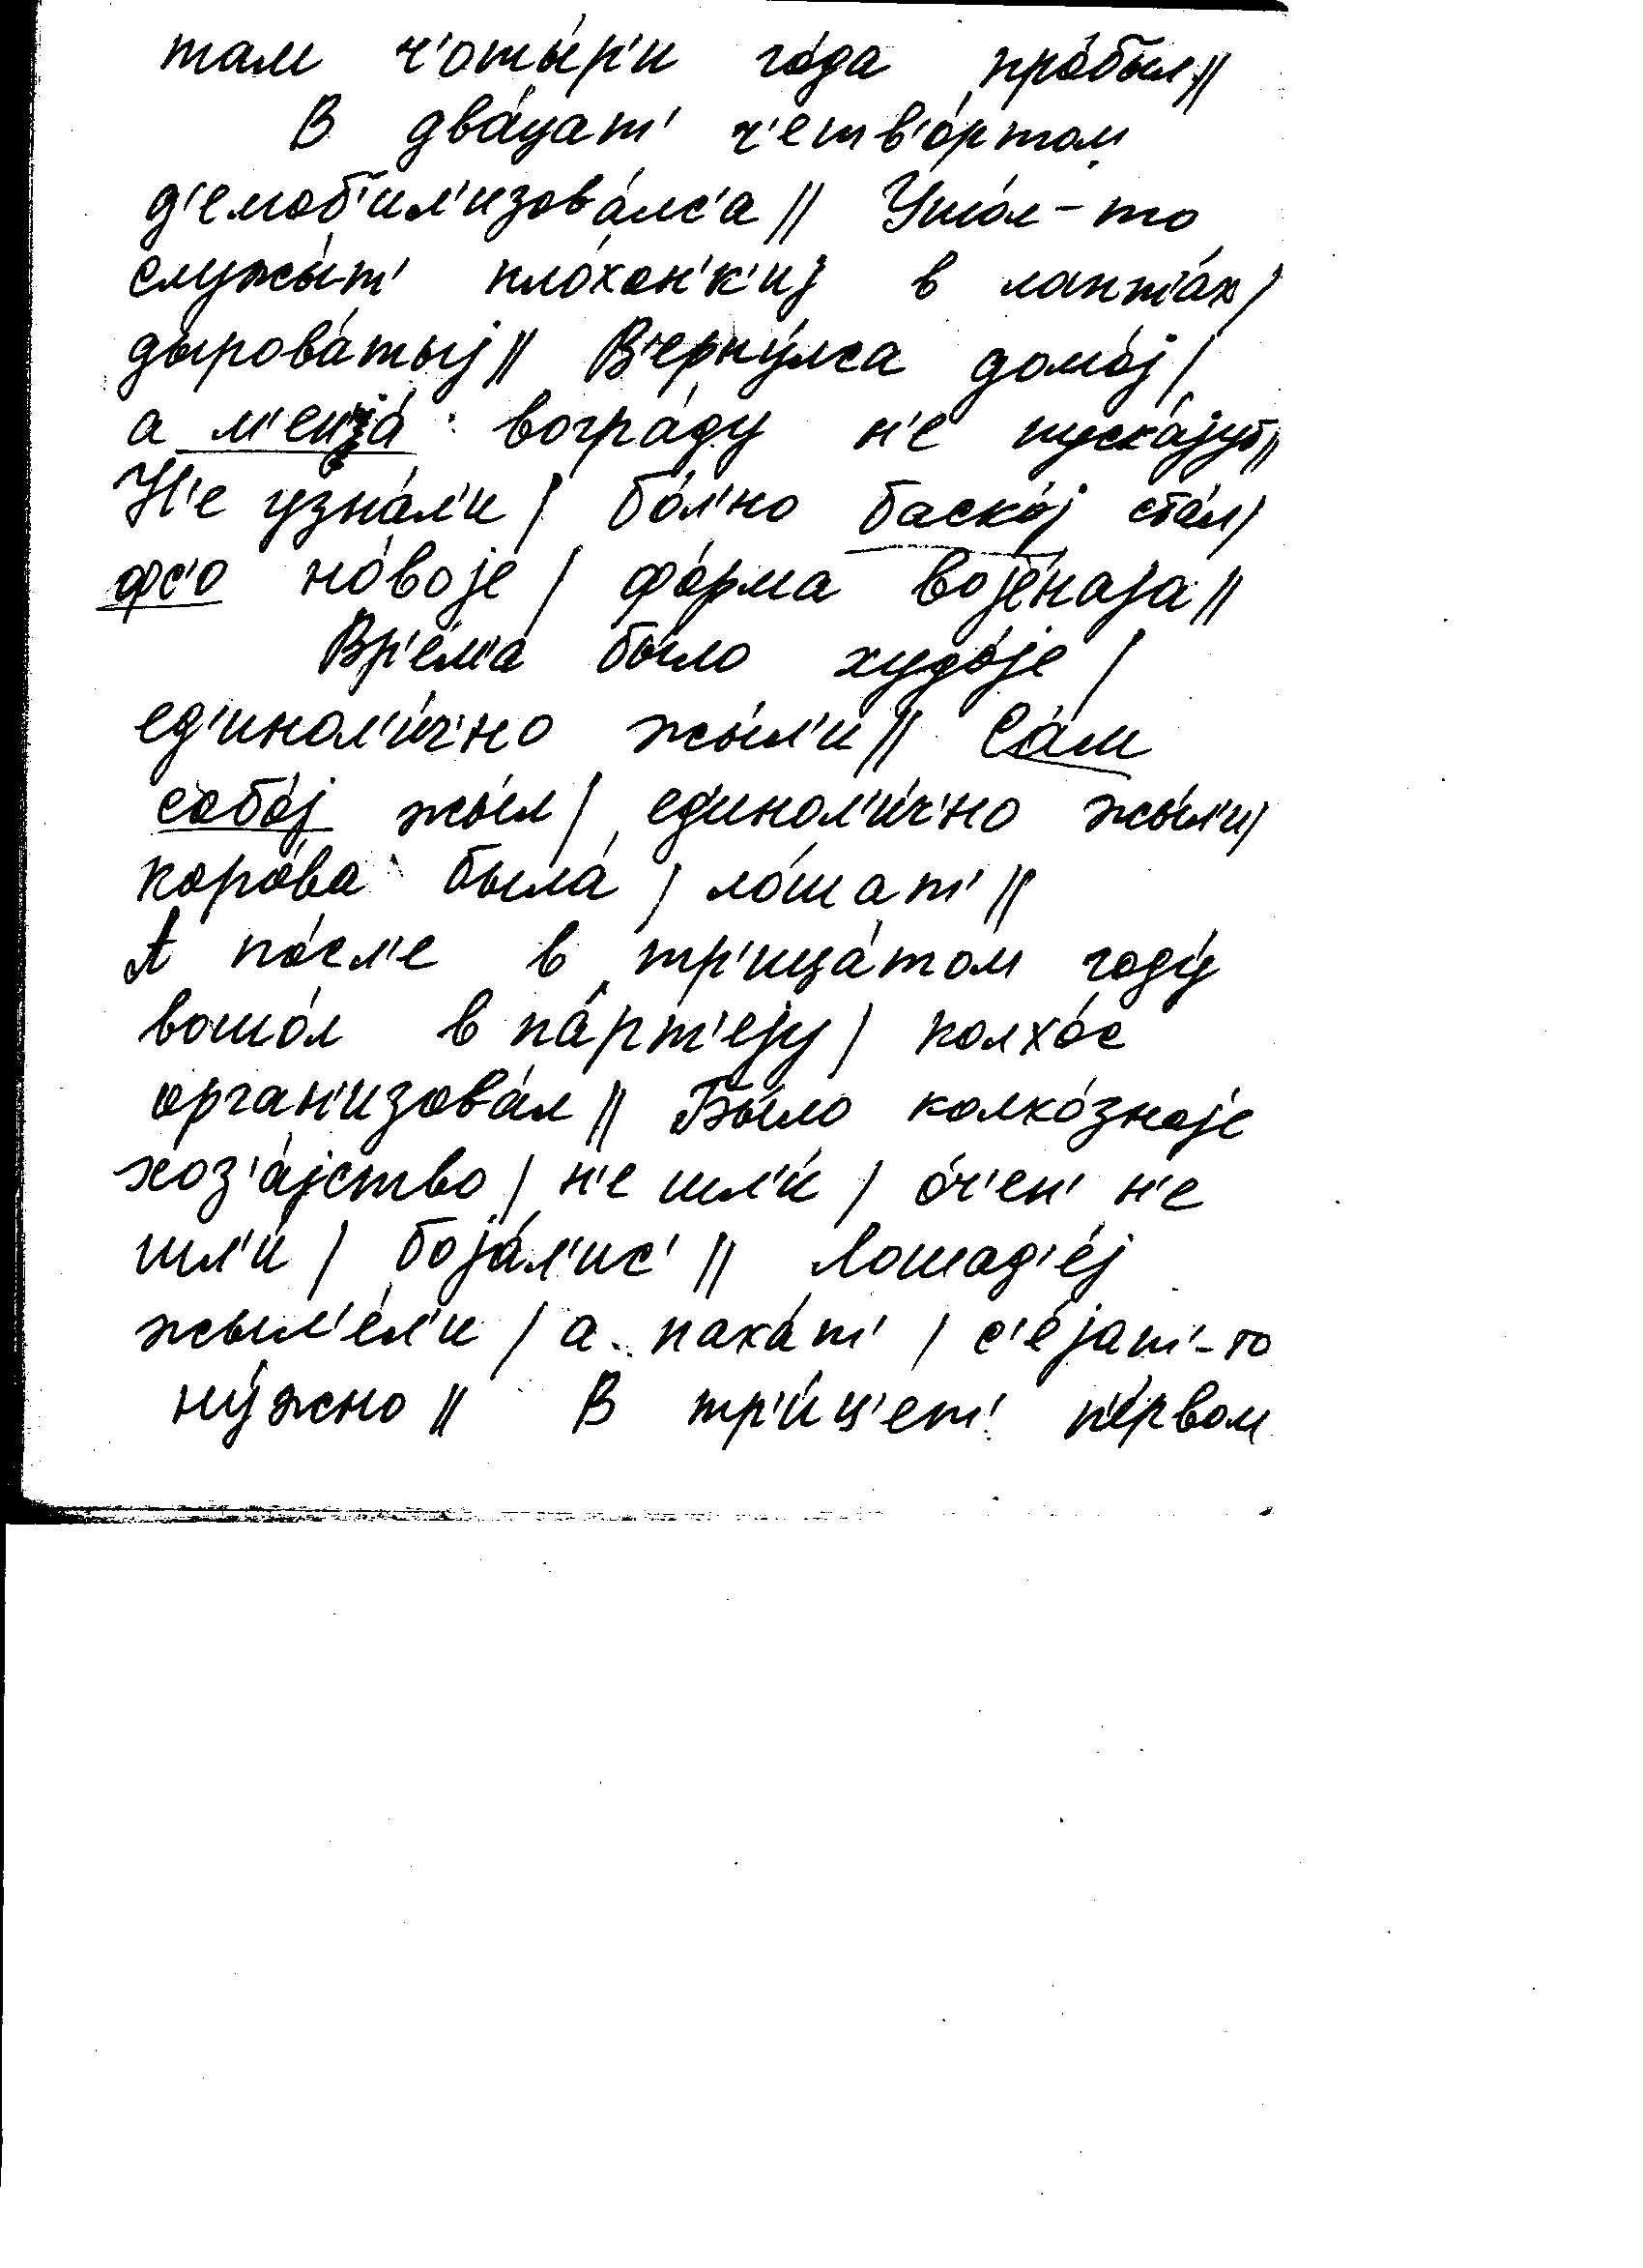 там ч'оты́р'и го́да про́был //
В два́цат' ч'етв'о́ртом
д'емоб'ил'изова́лс'а // Ушо́л-то
служы́т' пло́хон'к'иј в лапт'а́х /
дырова́тыј // В'ерну́лса домо́ј /
а м'ен'а́ вогра́ду н'е пуска́јут //
Н'е узна́л'и / бо́л'но баско́ј ста́л /
фс'о но́воје / фо́рма воје́наја //
Вр'е́м'а бы́ло худо́је /
ед'инол'и́ч'но жы́л'и // Са́м
собо́ј жы́л / ед'инол'и́ч'но жы́л'и /
коро́ва была́ / ло́шат' //
А по́сл'е в тр'ица́том году́
вошо́л в па́рт'ејy / колхо́с
орган'изова́л // Бы́ло колхо́зноје
хоз'а́јство / н'е шл'и́ / о́ч'ен' н'е
шл'и́ / боја́л'ис' // Лошад'е́ј
жыл'е́л'и / а паха́т' / с'е́јат'-то
ну́жно // В тр'и́ц'ет' п'е́рвом